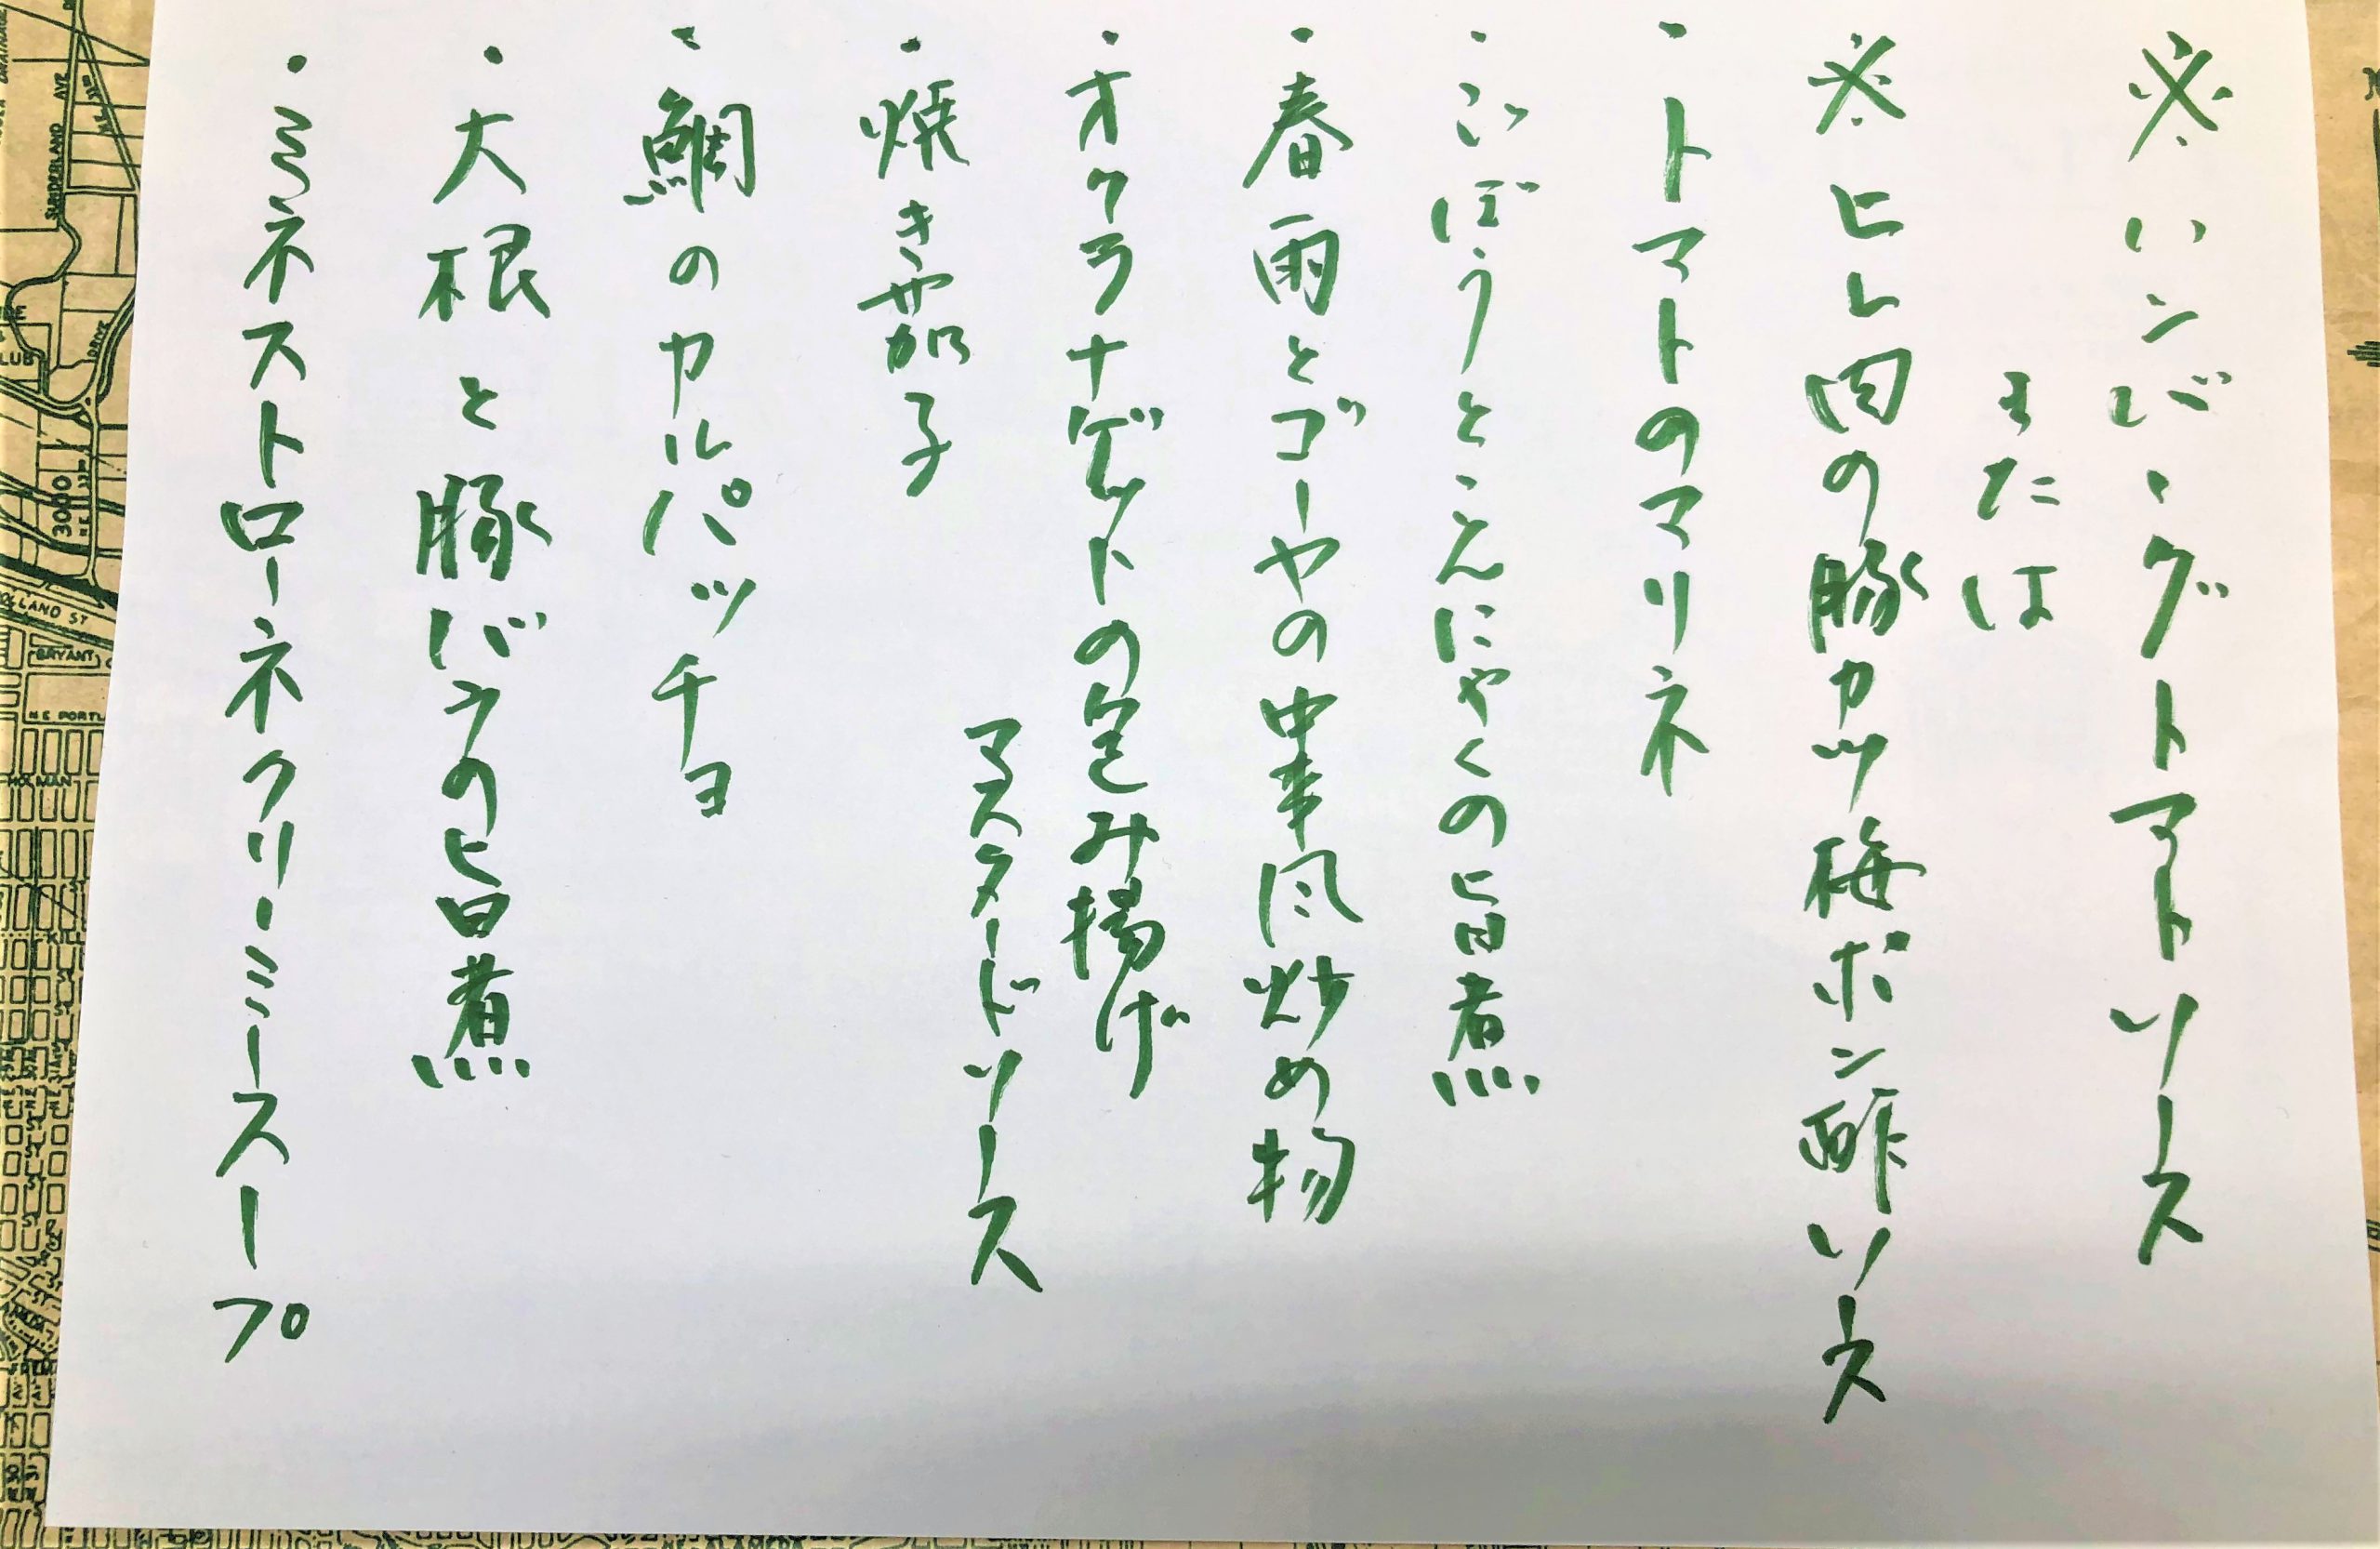 ※ハンバーグトマトソース
または
※ヒレ肉の豚カツ梅ポン酢ソース
・トマトのマリネ
・ごぼうとこんにゃくの旨煮
・春雨とゴーヤの中華風炒め物
・オクラナゲットの包み揚げ
マスタードソース
・焼き茄子
・鯛のカルパッチョ
・大根と豚バラの旨煮
・ミネストローネクリーミースープ
3000
SUNDERLAND
HOLLAND ST
BRYANT
HOLMAN